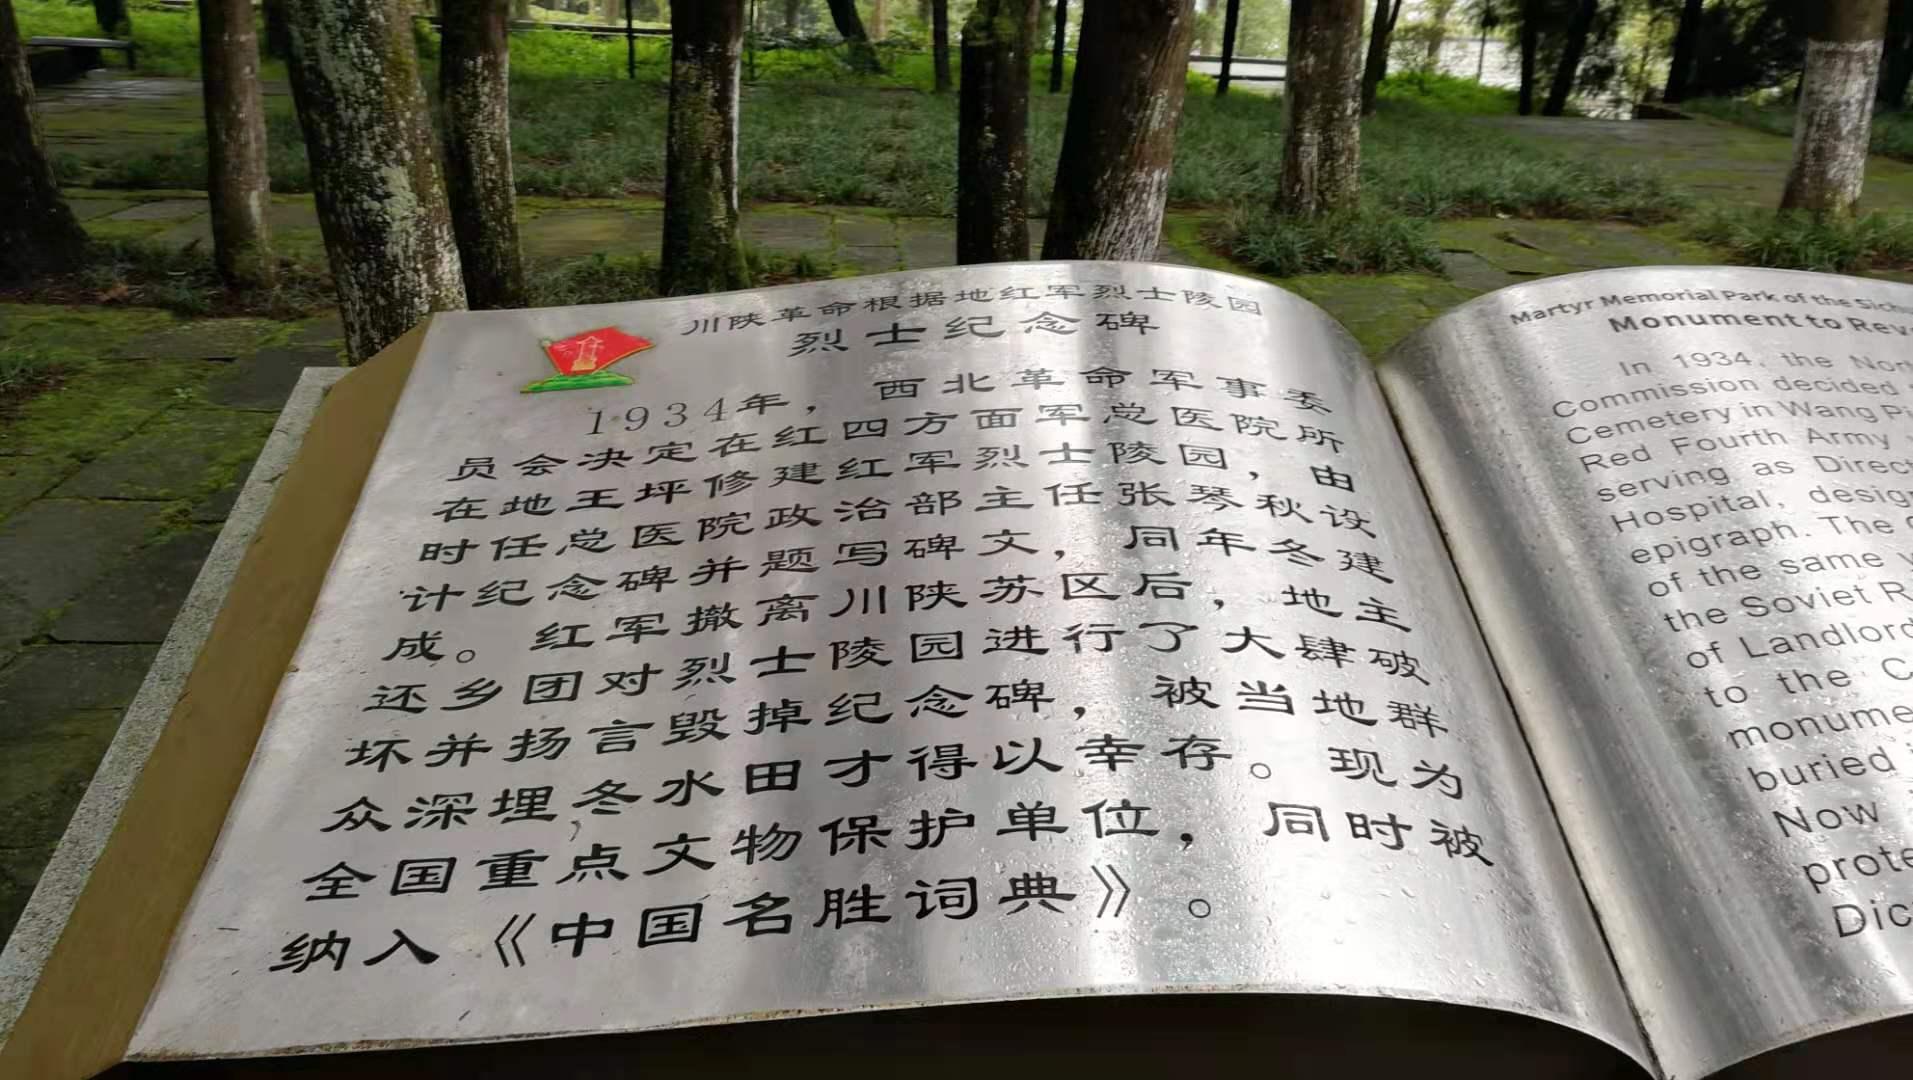 川陕革命根据地红军烈士陵园
烈士纪念碑
1934年，西北革命军事委
员会决定在红四方面军总医院所
在地王坪修建红军烈士陵园，由
时任总医院政治部主任张琴秋设
计纪念碑并题写碑文，同年冬建
成。红军撤离川陕苏区后，地主
还乡团对烈士陵园进行了大肆破
坏并扬言毁掉纪念碑，被当地群
众深埋冬水田才得以幸存。现为
全国重点文物保护单位，同时被
纳入《中国名胜词典》。
Martyr Memorial Park of the
Monument to
In 1934, the
Commission decided
Cemetery in Wang
Red Fourth Army
serving as
Hospital,
epigraph. The
of the same
the Soviet
of
to the
buried
Now